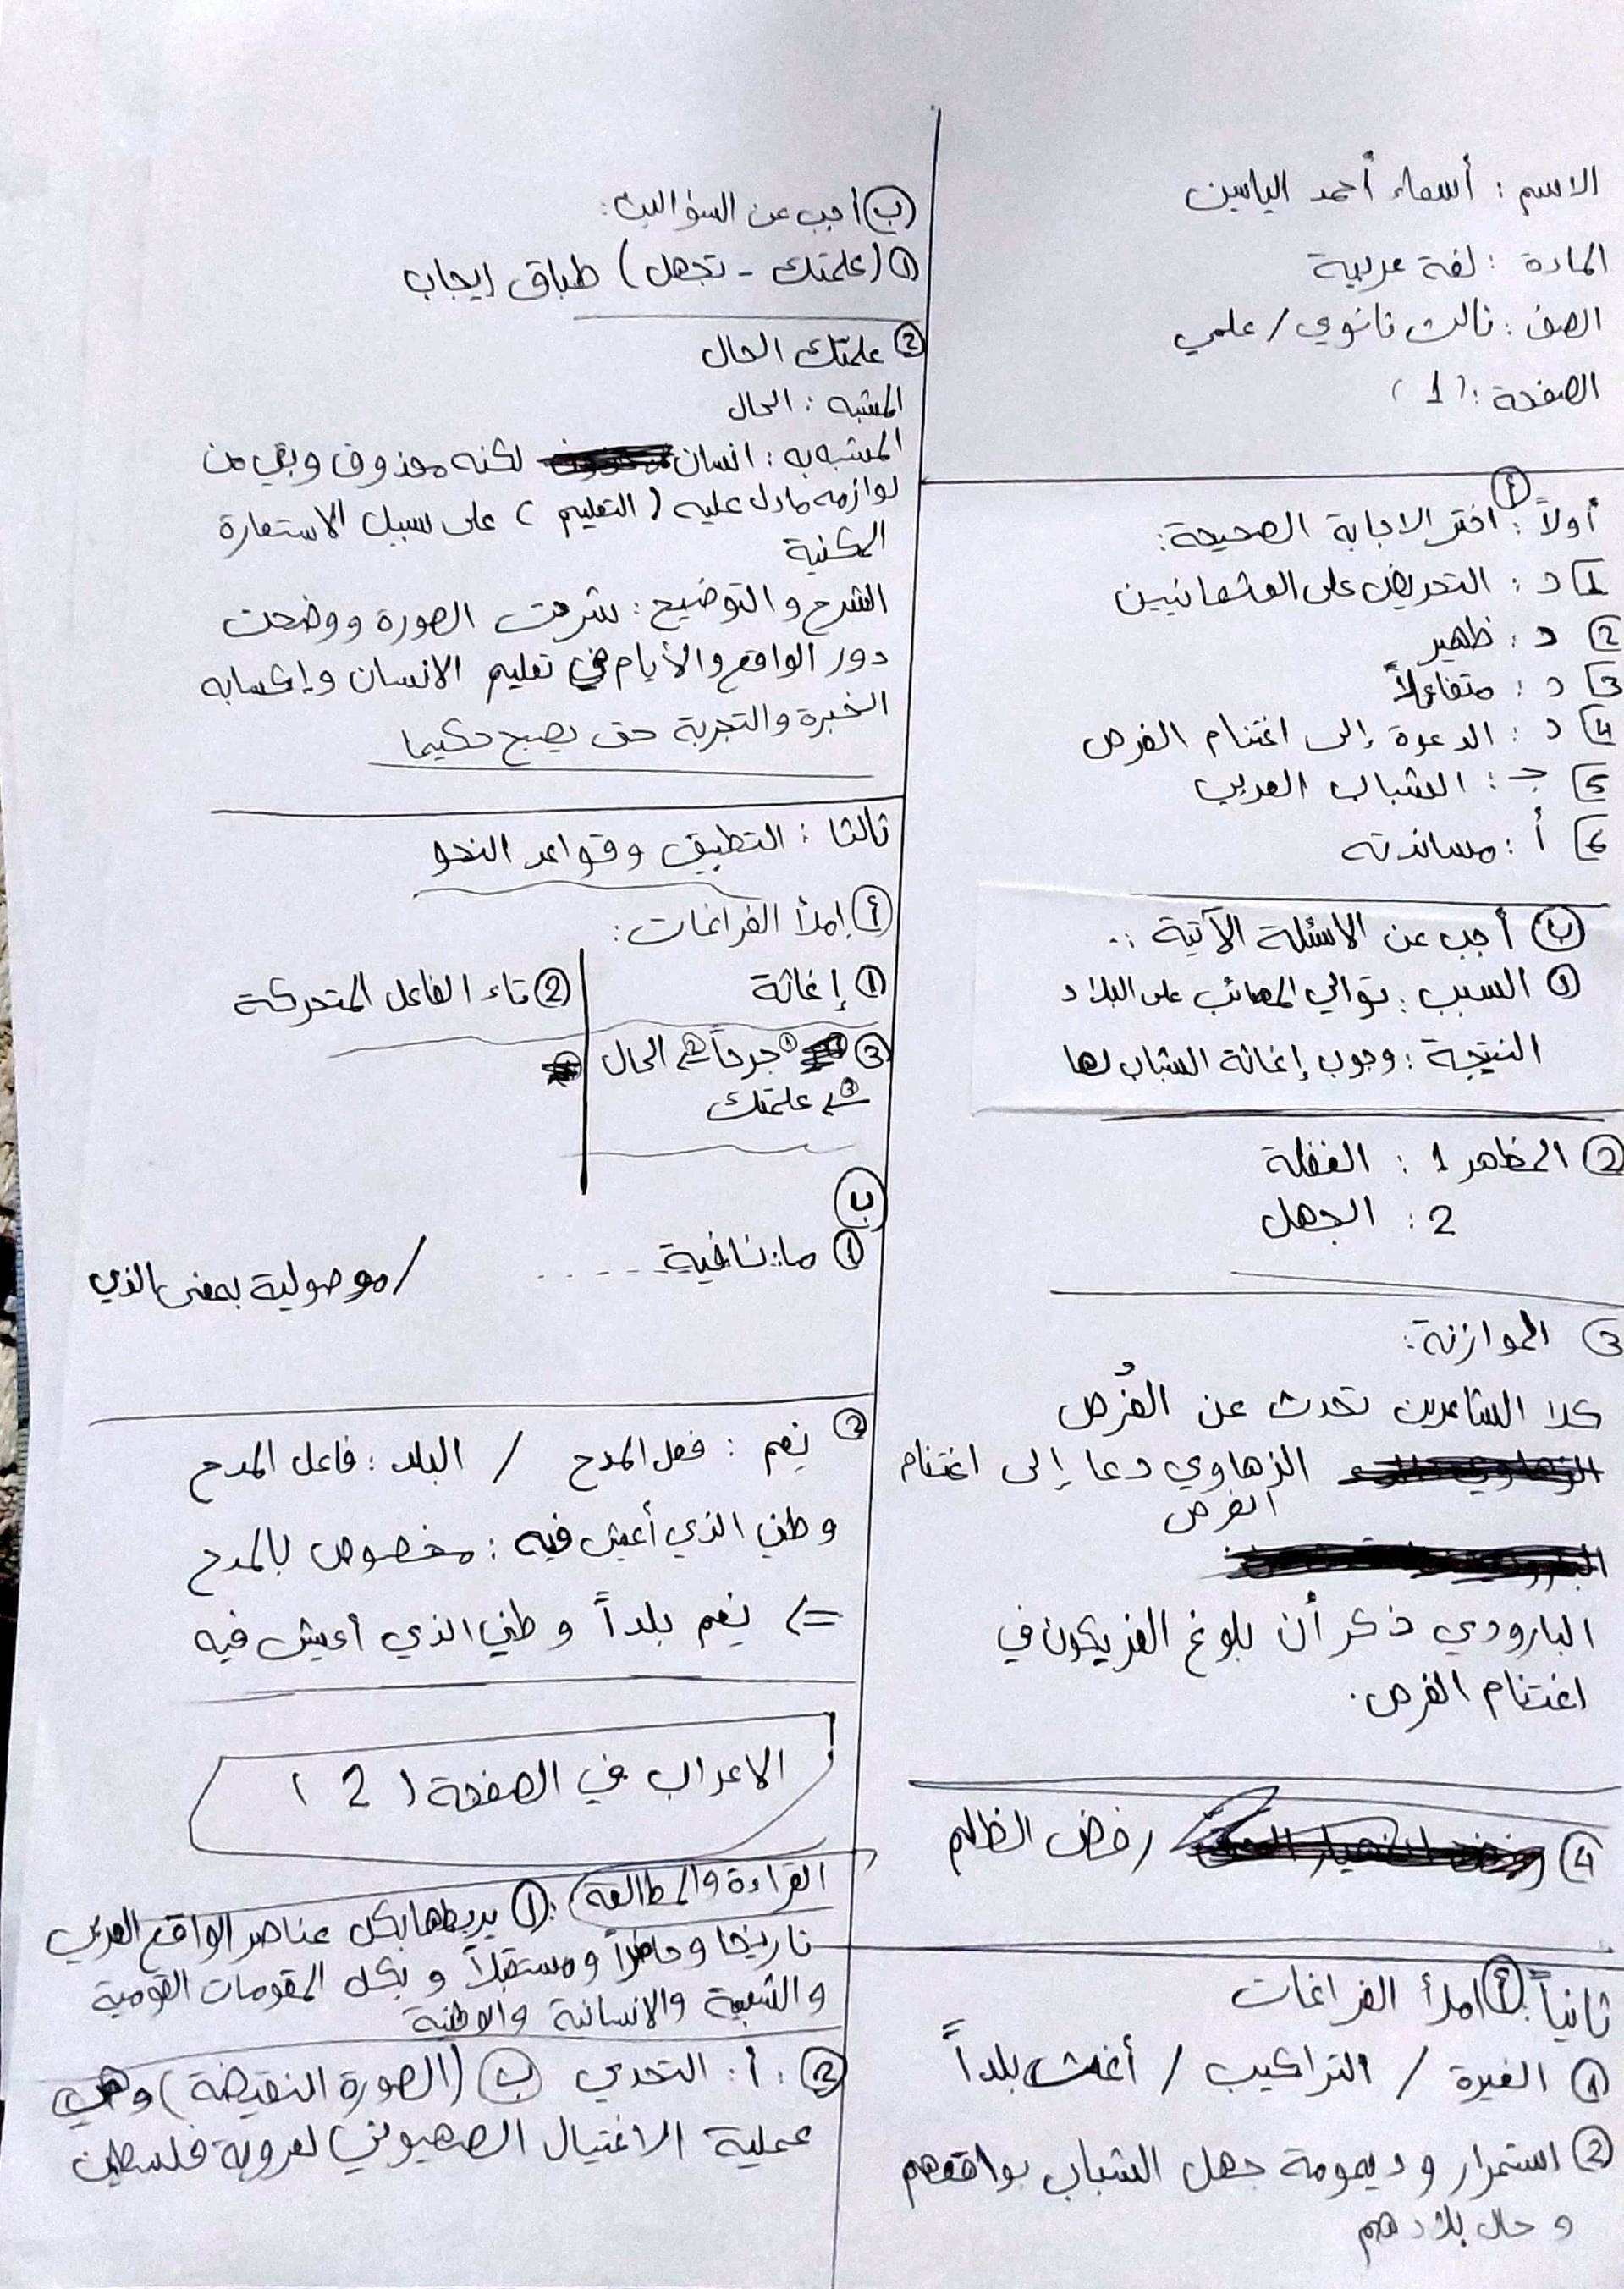 الاسم : أسماء أحمد الياسين
المادة : لغة عربية
الصف : ثالث ثانوي / علمي
الصفحة : (1)
أولاً : أ اختر الاجابة الصحيحة :
1 د : التحريض على العثمانيين
2 د : ظهير
3 د : متفاعلاً
4 د : الدعوة إلى اغتنام الفرص
5 جـ : الشباب العربي
6 أ : مساندته
ب أجب عن الاسئلة الآتية :
1 السبب : توالي المصائب على البلاد
النتيجة : وجوب إغاثة الشباب لها
2 المظاهر 1 : الغفلة
2 : الجهل
3 الموازنة :
كلا الشاعرين تحدث عن الفُرص
الزهاوي دعا إلى اغتنام
الفرص
البارودي ذكر أن بلوغ العز يكون في
اغتنام الفرص .
4 رفض الظلم
ثانياً : أ املأ الفراغات
1 الغيرة / التراكيب / أغث بلداً
2 استمرار وديمومة جهل الشباب بواقعهم
و حال بلادهم
ب أجب عن السؤالين :
1 (علمتك - تجهل) طباق إيجاب
2 علمتك الحال
المشبه : الحال
المشبه به : انسان لكنه محذوف وبقي من
لوازمه مادل عليه (التعليم) على سبيل الاستعارة
المكنية
الشرح والتوضيح : شرحت الصورة ووضحت
دور الواقع والأيام في تعليم الانسان وإكسابه
الخبرة والتجربة حتى يصبح حكيما
ثالثا : التطبيق وقواعد النحو
أ إملأ الفراغات :
1 إغاثة
2 تاء الفاعل المتحركة
3 1 جرحاً 2 الحال
3 علمتك
ب
1 ما : نافية ..... / موصولية بمعنى الذي
2 نعم : فعل المدح / البلد : فاعل المدح
وطني الذي أعيش فيه : مخصوص بالمدح
=> نعم بلداً وطني الذي أعيش فيه
الاعراب في الصفحة (2)
القراءة والمطالعة : 1 يربطها بكل عناصر الواقع العربي
تاريخا وحاضراً ومستقبلاً وبكل المقومات القومية
والشعبية والانسانية والوطنية
2 : أ : التحدي ب (الصورة النقيضة) وهي
عملية الاغتيال الصهيوني لعروبة فلسطين